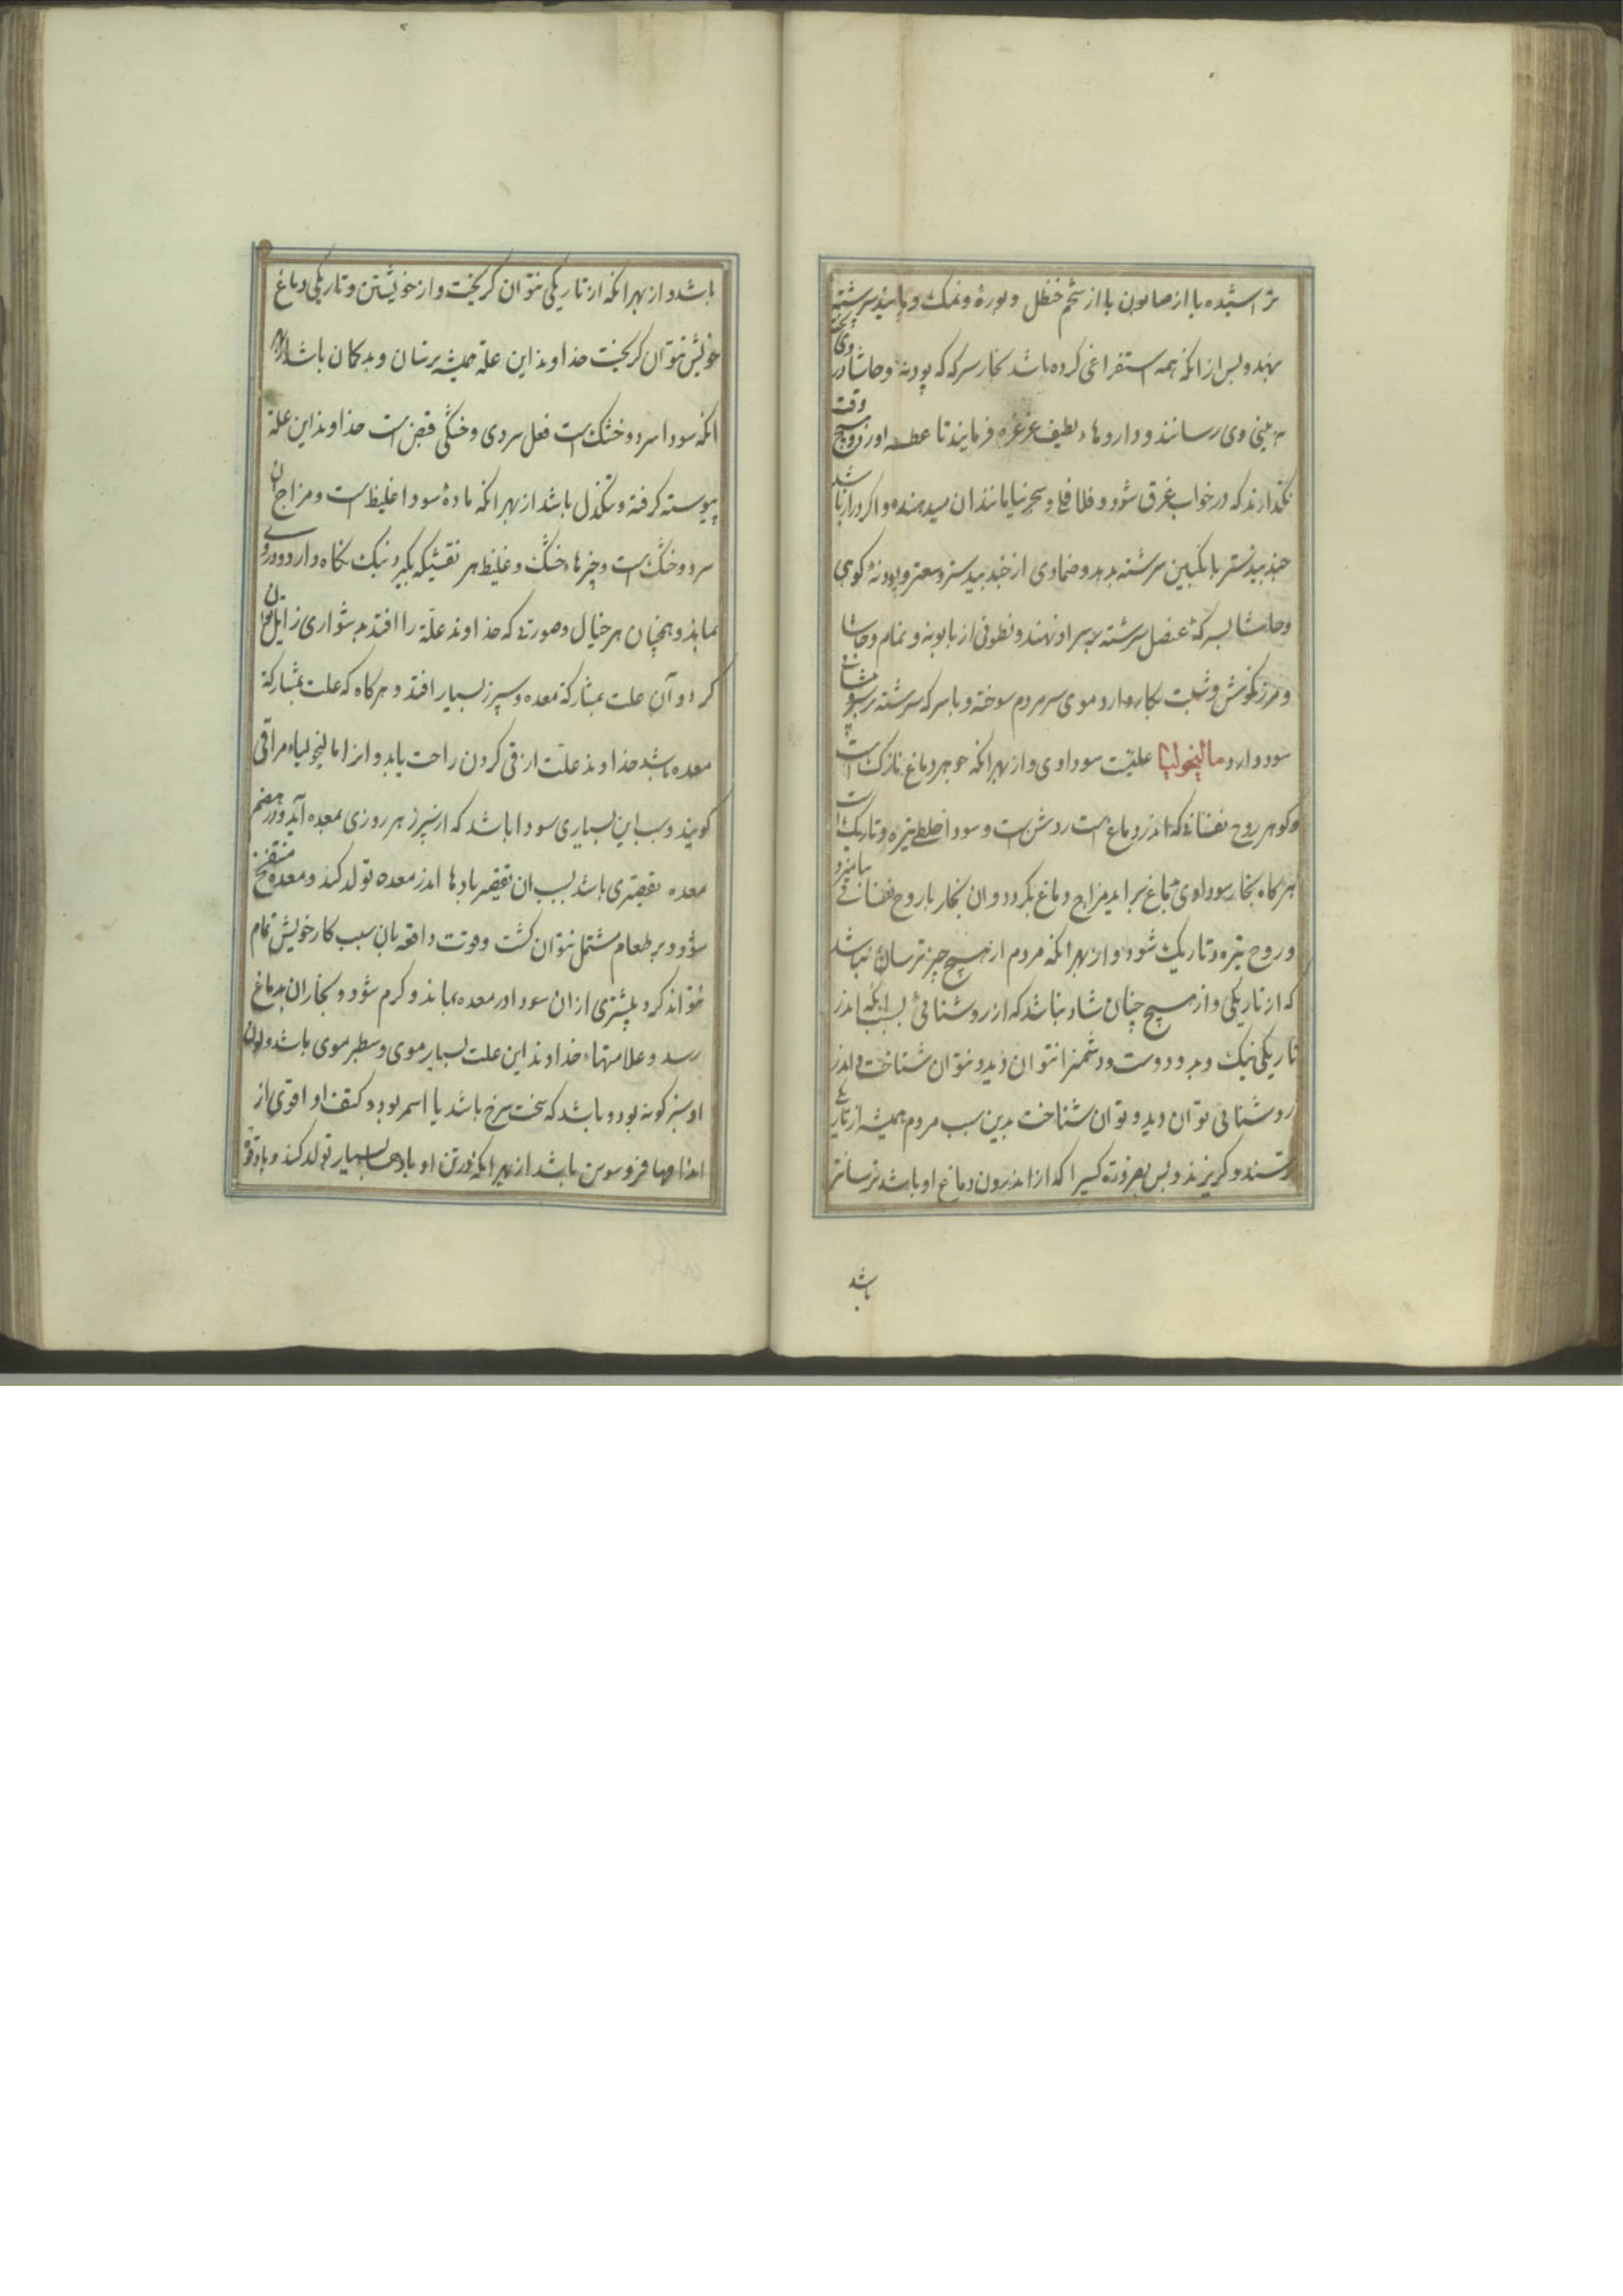 تراشیده یا از صابون یا از شحم حنظل و بوره و نمک و بانیذ سرشته
بنهند و پس از انکه همه استفراغی کرده باشد بخار سرکه که پودنه و حاشا در وی پخته
به بینی وی رسانند و داروهاء لطیف غرغره فرمایند تا عطسه اورد و هیچ وقت
نکذارند که در خواب غرق شود و فلافلی و سجرنیا مانند ان میدهند و اکر دراز باشد
جندبیدستر بانکبین سرشته بدهد و ضمادی از جندبیدستر و سعتر و پودنه کوهی
و حاشا بسرکه عنصل سرشته بر سر او نهند و نطولی از بابونه و نمام و حاشا
و مرزنکوش و شبت بکار دارد و موی سر مردم سوخته و با سرکه سرشته بر
سود دارد مالیخولیا علتیست سوداوی و از بهر انکه جوهر دماغ نازک است
و کوهر روح نفسانی که اندر دماغ است روشن است و سودا خلطی تیره و تاریک است
هرکاه بخار سوداوی بدماغ براید مزاج دماغ بکردد و ان بخار با روح نفسانی بیامیزد
و روح تیره و تاریک شود و از بهر انکه مردم از هیچ چیز ترسان نباشد
که از تاریکی و از هیچ چنان شاد نباشد که از روشنائی بسبب انکه اندر
تاریکی نیک و بد و دوست و دشمن را نتوان دید و نتوان شناخت و اندر
روشنائی توان دید و توان شناخت بدین سبب مردم همیشه از تاریکی
ترسند و کریزند و پس بضرورة کسیرا که از اندرون دماغ او باشد ترسانتر
باشد
باشد و از بهر انکه از تاریکی نتوان کریخت و از خویشتن و تاریکی دماغ
خویش نتوان کریخت خداوند این علة همیشه ترسان و بدکمان باشد از بهر
انکه سودا سرد و خشک است فعل سردی و خشکی قبض است خداوند این علة
پیوسته کرفته و تنکدل باشد از بهر انکه مادهٔ سودا غلیظ است و مزاج ان
سرد و خشک است و چیزهاء خشک و غلیظ هر نقشیکه بکیرد نیک نکاه دارد و در وی
بماند و همچنان هر خیال و صورتی که خداوند علة را افتد بدشواری زایل توان
کرد و آن علت بمشارکة معده و سپرز بسیار افتد و هرکاه که علت بمشارکة
معده باشد خداوند علت از قی کردن راحت یابد و انرا مالیخولیاء مراقی
کویند و سبب این بسیاری سودا باشد که از سپرز هر روزی بمعده آید و در هضم
معده تقصیری باشد بسبب ان تقصیر بادها اندر معده تولد کند و معده منتفخ
شود و بر طعام مشتمل نتوان کشت و قوت دافعه بان سبب کار خویش تمام
نتواند کرد و بیشتری از ان سودا در معده بماند و کرم شود و بخار ان بدماغ
رسد و علامتهاء خداوند این علت بسیار موی و سطبر موی باشد و لون
او سبز کونه بود و باشد که سخت سرخ باشد یا اسمر بود و کتف او اقوی از
اندامها باشد از بهر انکه در تن او بادها بسیار تولد کند و باد